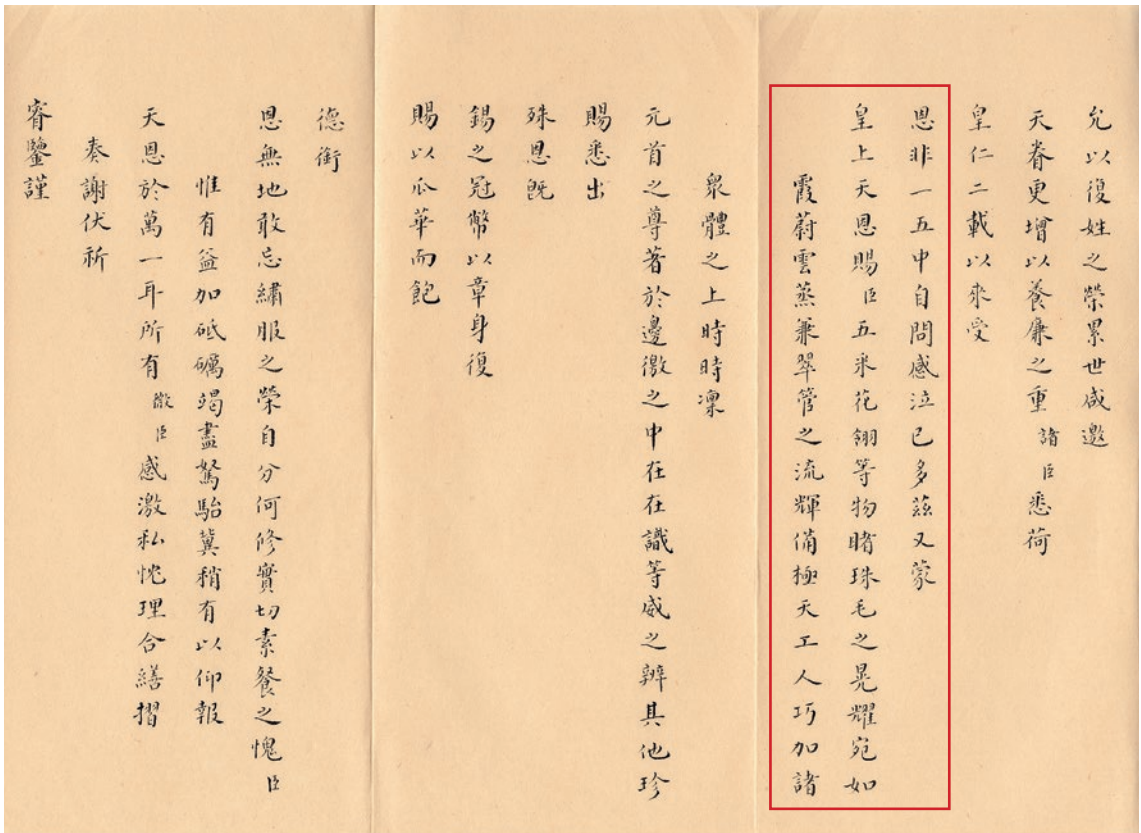 允以復姓之榮累世咸邀
天眷更增以養廉之重諸臣悉荷
皇仁二載以來受
恩非一五中自問感泣已多茲又蒙
皇上天恩賜臣五采花翎等物睹珠毛之晃耀宛如
霞蔚雲蒸兼翠管之流輝俻極天工人巧加諸
衆體之上時時凜
元首之尊著於邊徼之中在在識等威之辨其他珍
賜悉出
殊恩既
錫之冠幣以章身復
賜以瓜華而飽
德銜
恩無地敢忘繡服之榮自分何修實切素餐之愧臣
惟有益加砥礪竭盡駑駘冀稍有以仰報
天恩於萬一耳所有微臣感激私忱理合繕摺
奏謝伏祈
睿鑒謹